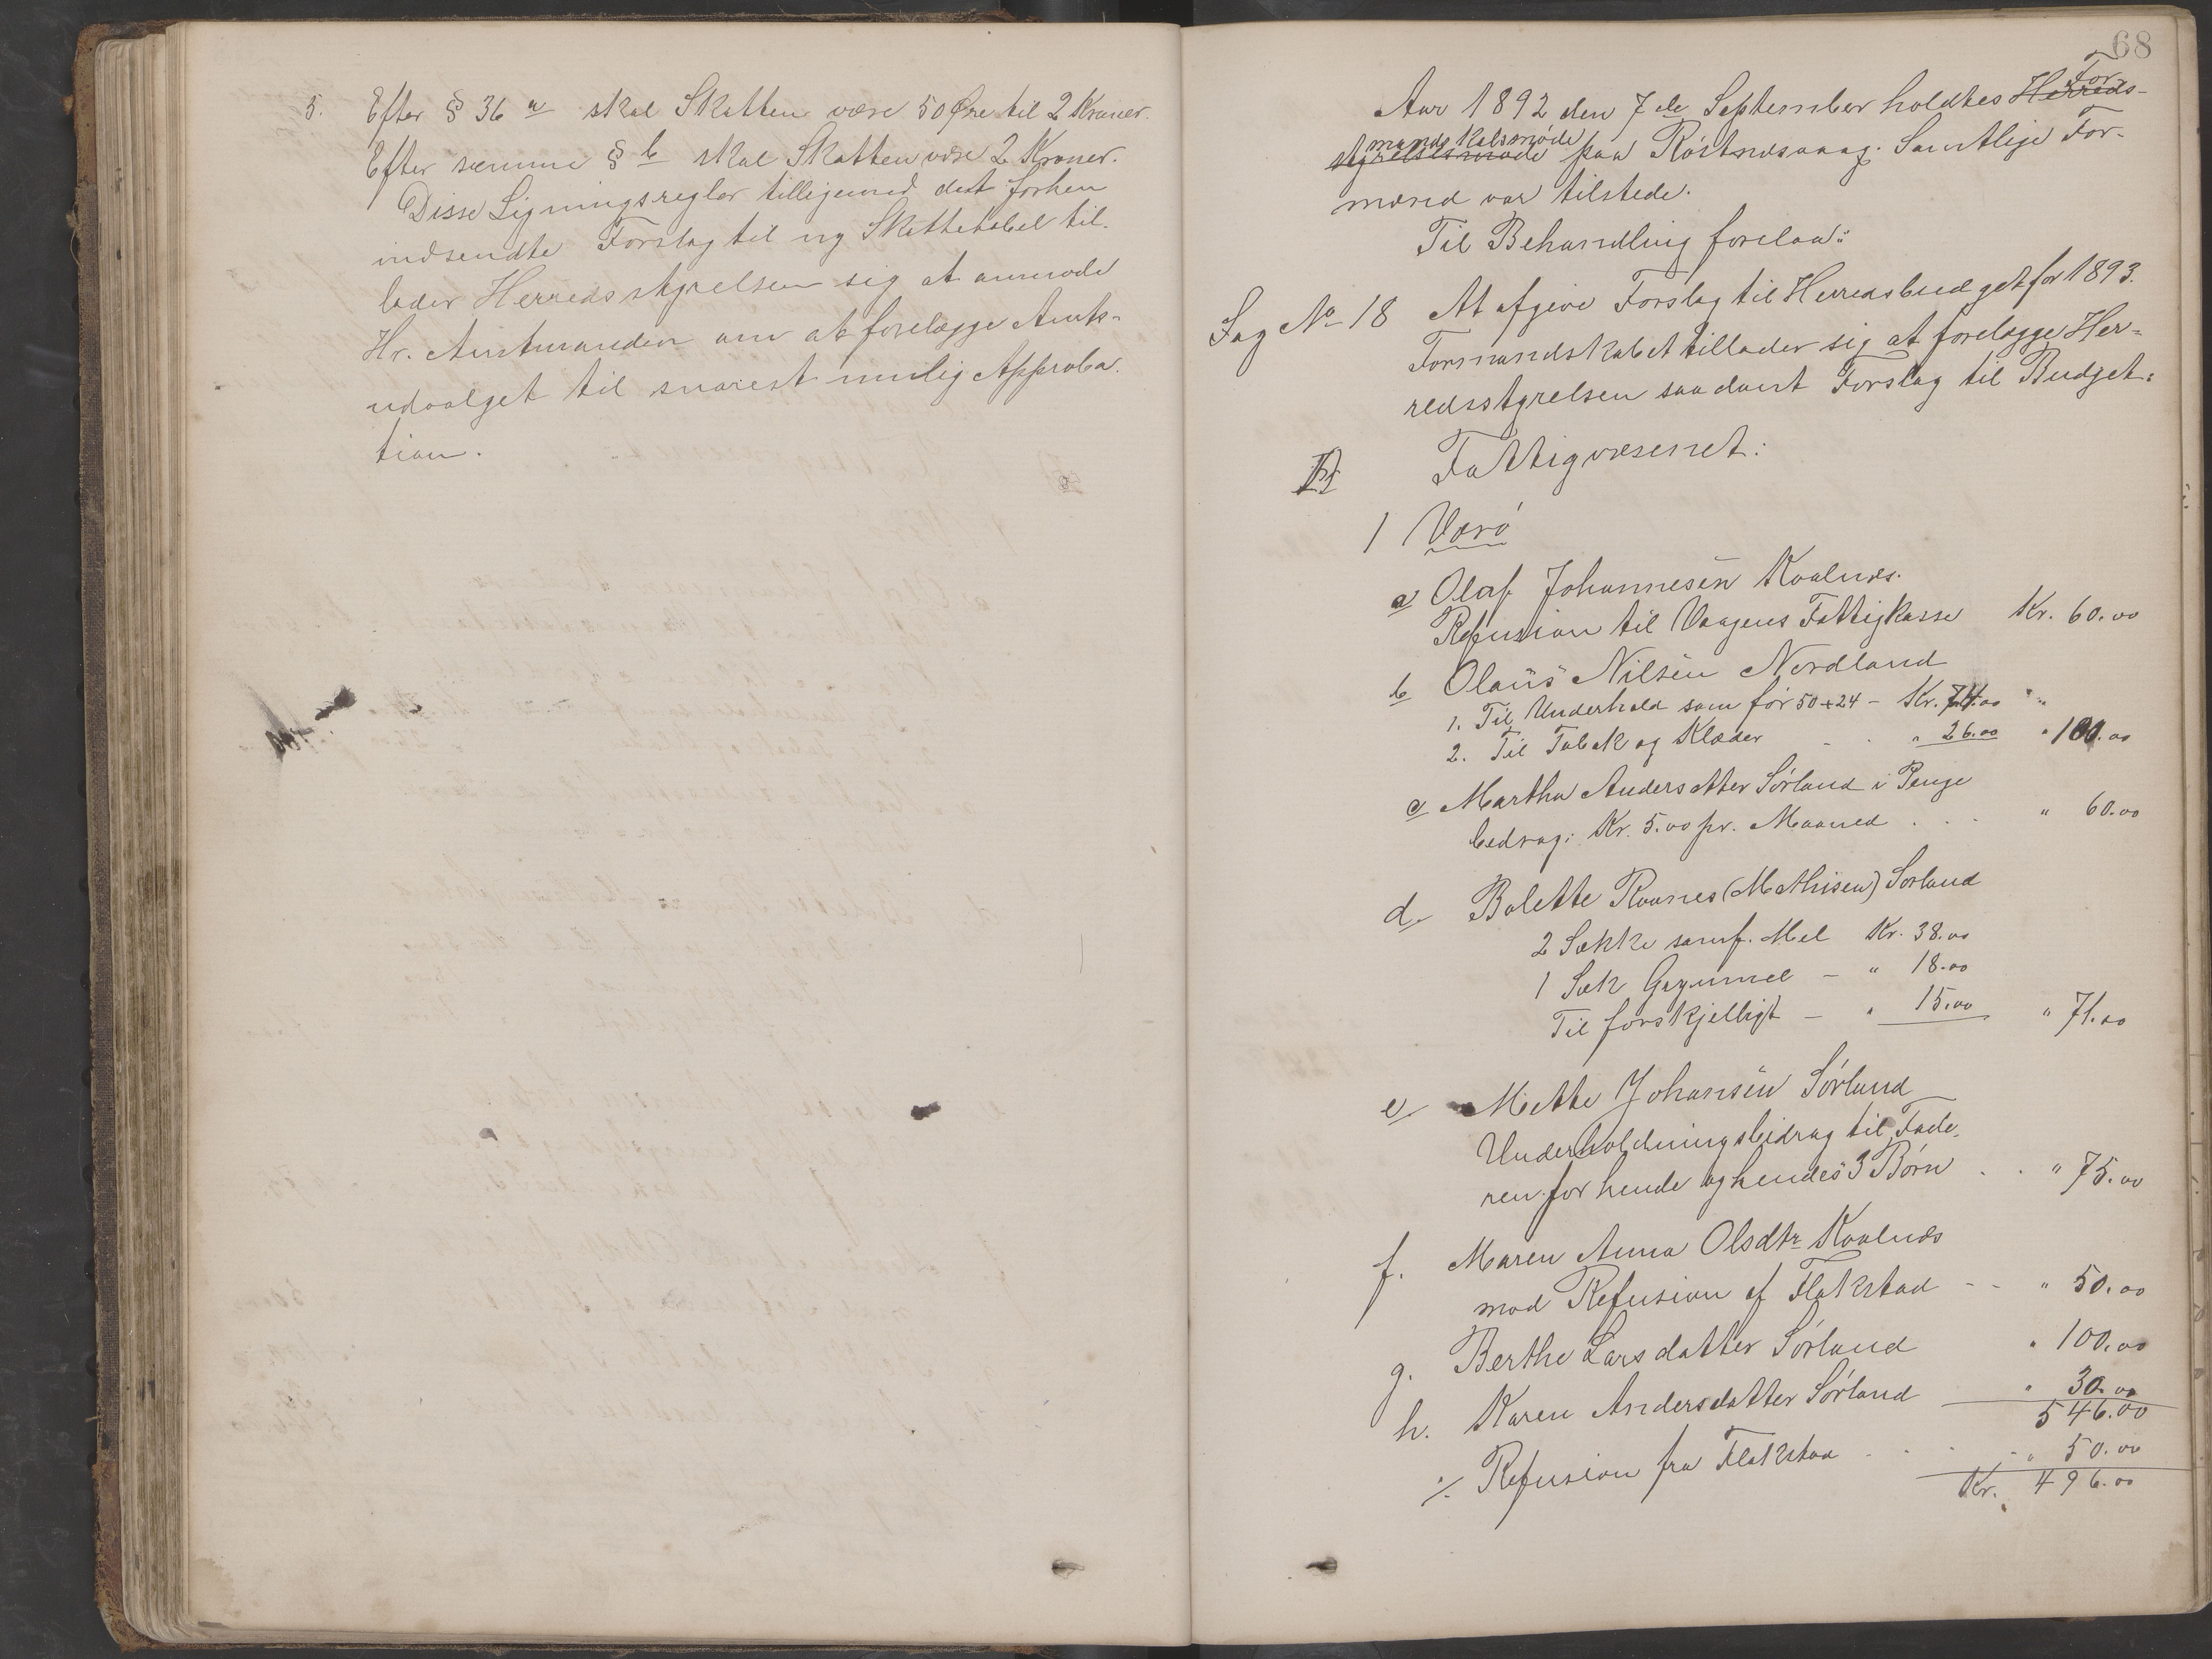 5. Efter § 36 a skal Skatten være 50 Øre til 2 Kroner.
Efter samme § b skal Skatten være 2 Kroner.
Disse Ligningsregler tilligemed det forhen
indsendte Forslag til ny Skattetabel til-
lader Herredsstyrelsen sig at anmode
Hr. Amtmanden om at forelægge Amts-
udvalget til snarest mulig Approba-
tion.
68
For
Aar 1892 den 7de September holdtes Herreds-
mandskabsmøde
styrelsesmøde paa Röstnesvaag. Samtlige For-
mænd var tilstede.
Til Behandling forelaa:
Sag No 18 At afgive Forslag til Herredsbudget for 1893.
Formandskabet tillader sig at forelægge Her-
redsstyrelsen saadant Forslag til Budget:
Fattigvæsenet:
1 Værö
a Olaf Johannesen Kvalnæs.
Refusion til Vaagens Fattigkasse Kr. 60.00
b Olaus Nilsen Nordland
1. Til Underhold som för 50+24 - Kr. 74.00 "
2. Til Tabak og Klæder " 26.00 " 100.00
c Martha Andersdtter Sörland i Penge
bedrag: Kr. 5.00 pr. Maaned . . . " 60.00
d. Balette Roanes (Mathisen) Sörland
2 Sække samf. Mel Kr. 38.00
1 Sæk Grynmel - " 18.00
Til forskjelligt - " 15.00 " 71.00
e. Mette Johansen Sörland
Underholdningsbidrag til Fade-
ren for hende og hendes 3 Börn . . " 75.00
f. Maren Anna Olsdtr Kvalnæs
mod Refusion af Flakstad - - " 50.00
g. Berthe Larsdatter Sörland " 100.00
h. Karen Andersdatter Sörland " 30.00
546.00
⁒ Refusion fra Flakstad . . . " 50.00
Kr. 496.00